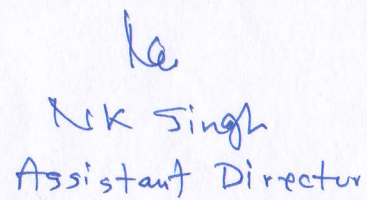 NK Singh
Assistant Director